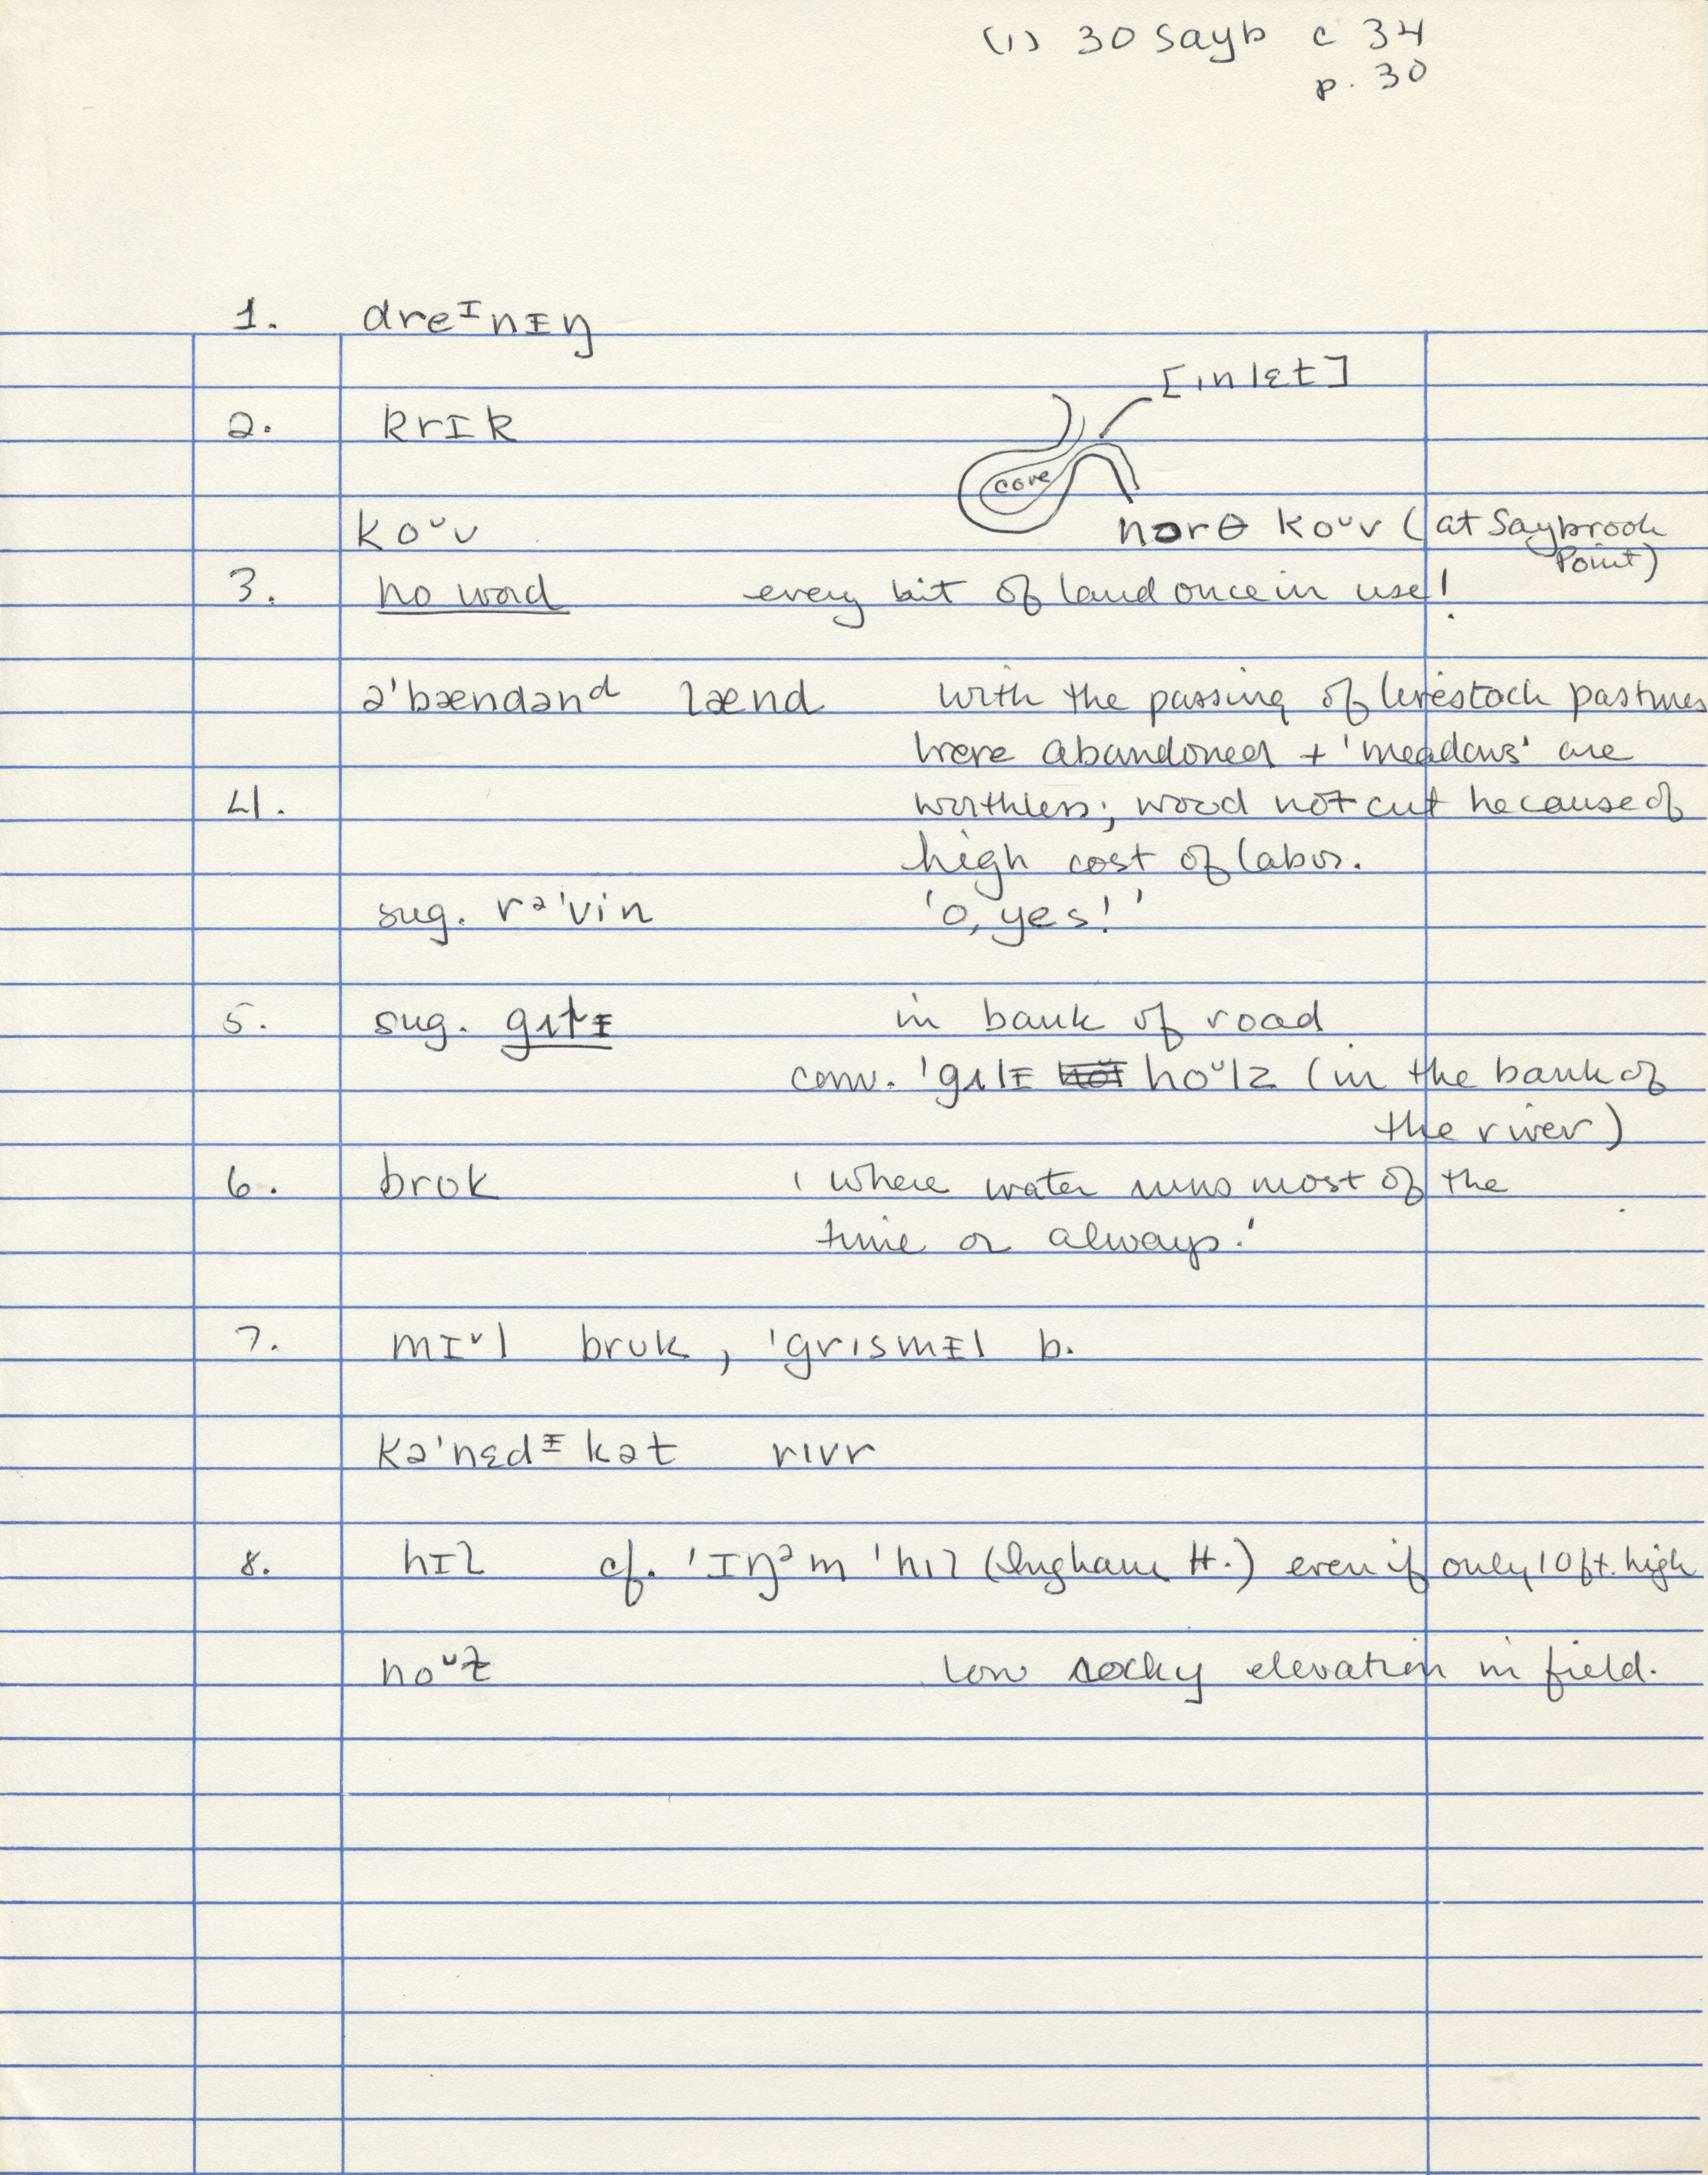 (1) 30 Sayb c 34
p. 30
1. dreᴵnᵻŋ
[inlɛt]
2. krɪk
cove
koᵘv norθ koᵘv (at Saybrook
Point)
3. no word every bit of land once in use!
əˈbændənᵈ lænd with the passing of livestock pastures
were abandoned + 'meadows' are
4. worthless; wood not cut because of
high cost of labor.
sug. rəˈvin 'O, yes!'
5. sug. in bank of road
conv. ˈgʌlᵻ hoᵘlz (in the bank of
the river)
6. brʊk 'where water runs most of the
time or always.'
7. mɪᵛl brʊk, ˈgrɪsmᵻl b.
kəˈnɛdᵻkət rɪvr
8. hɪl cf. ˈɪŋᵊm ˈhɪl (Ingham H.) even if only 10 ft. high
noᵘɫ low rocky elevation in field.